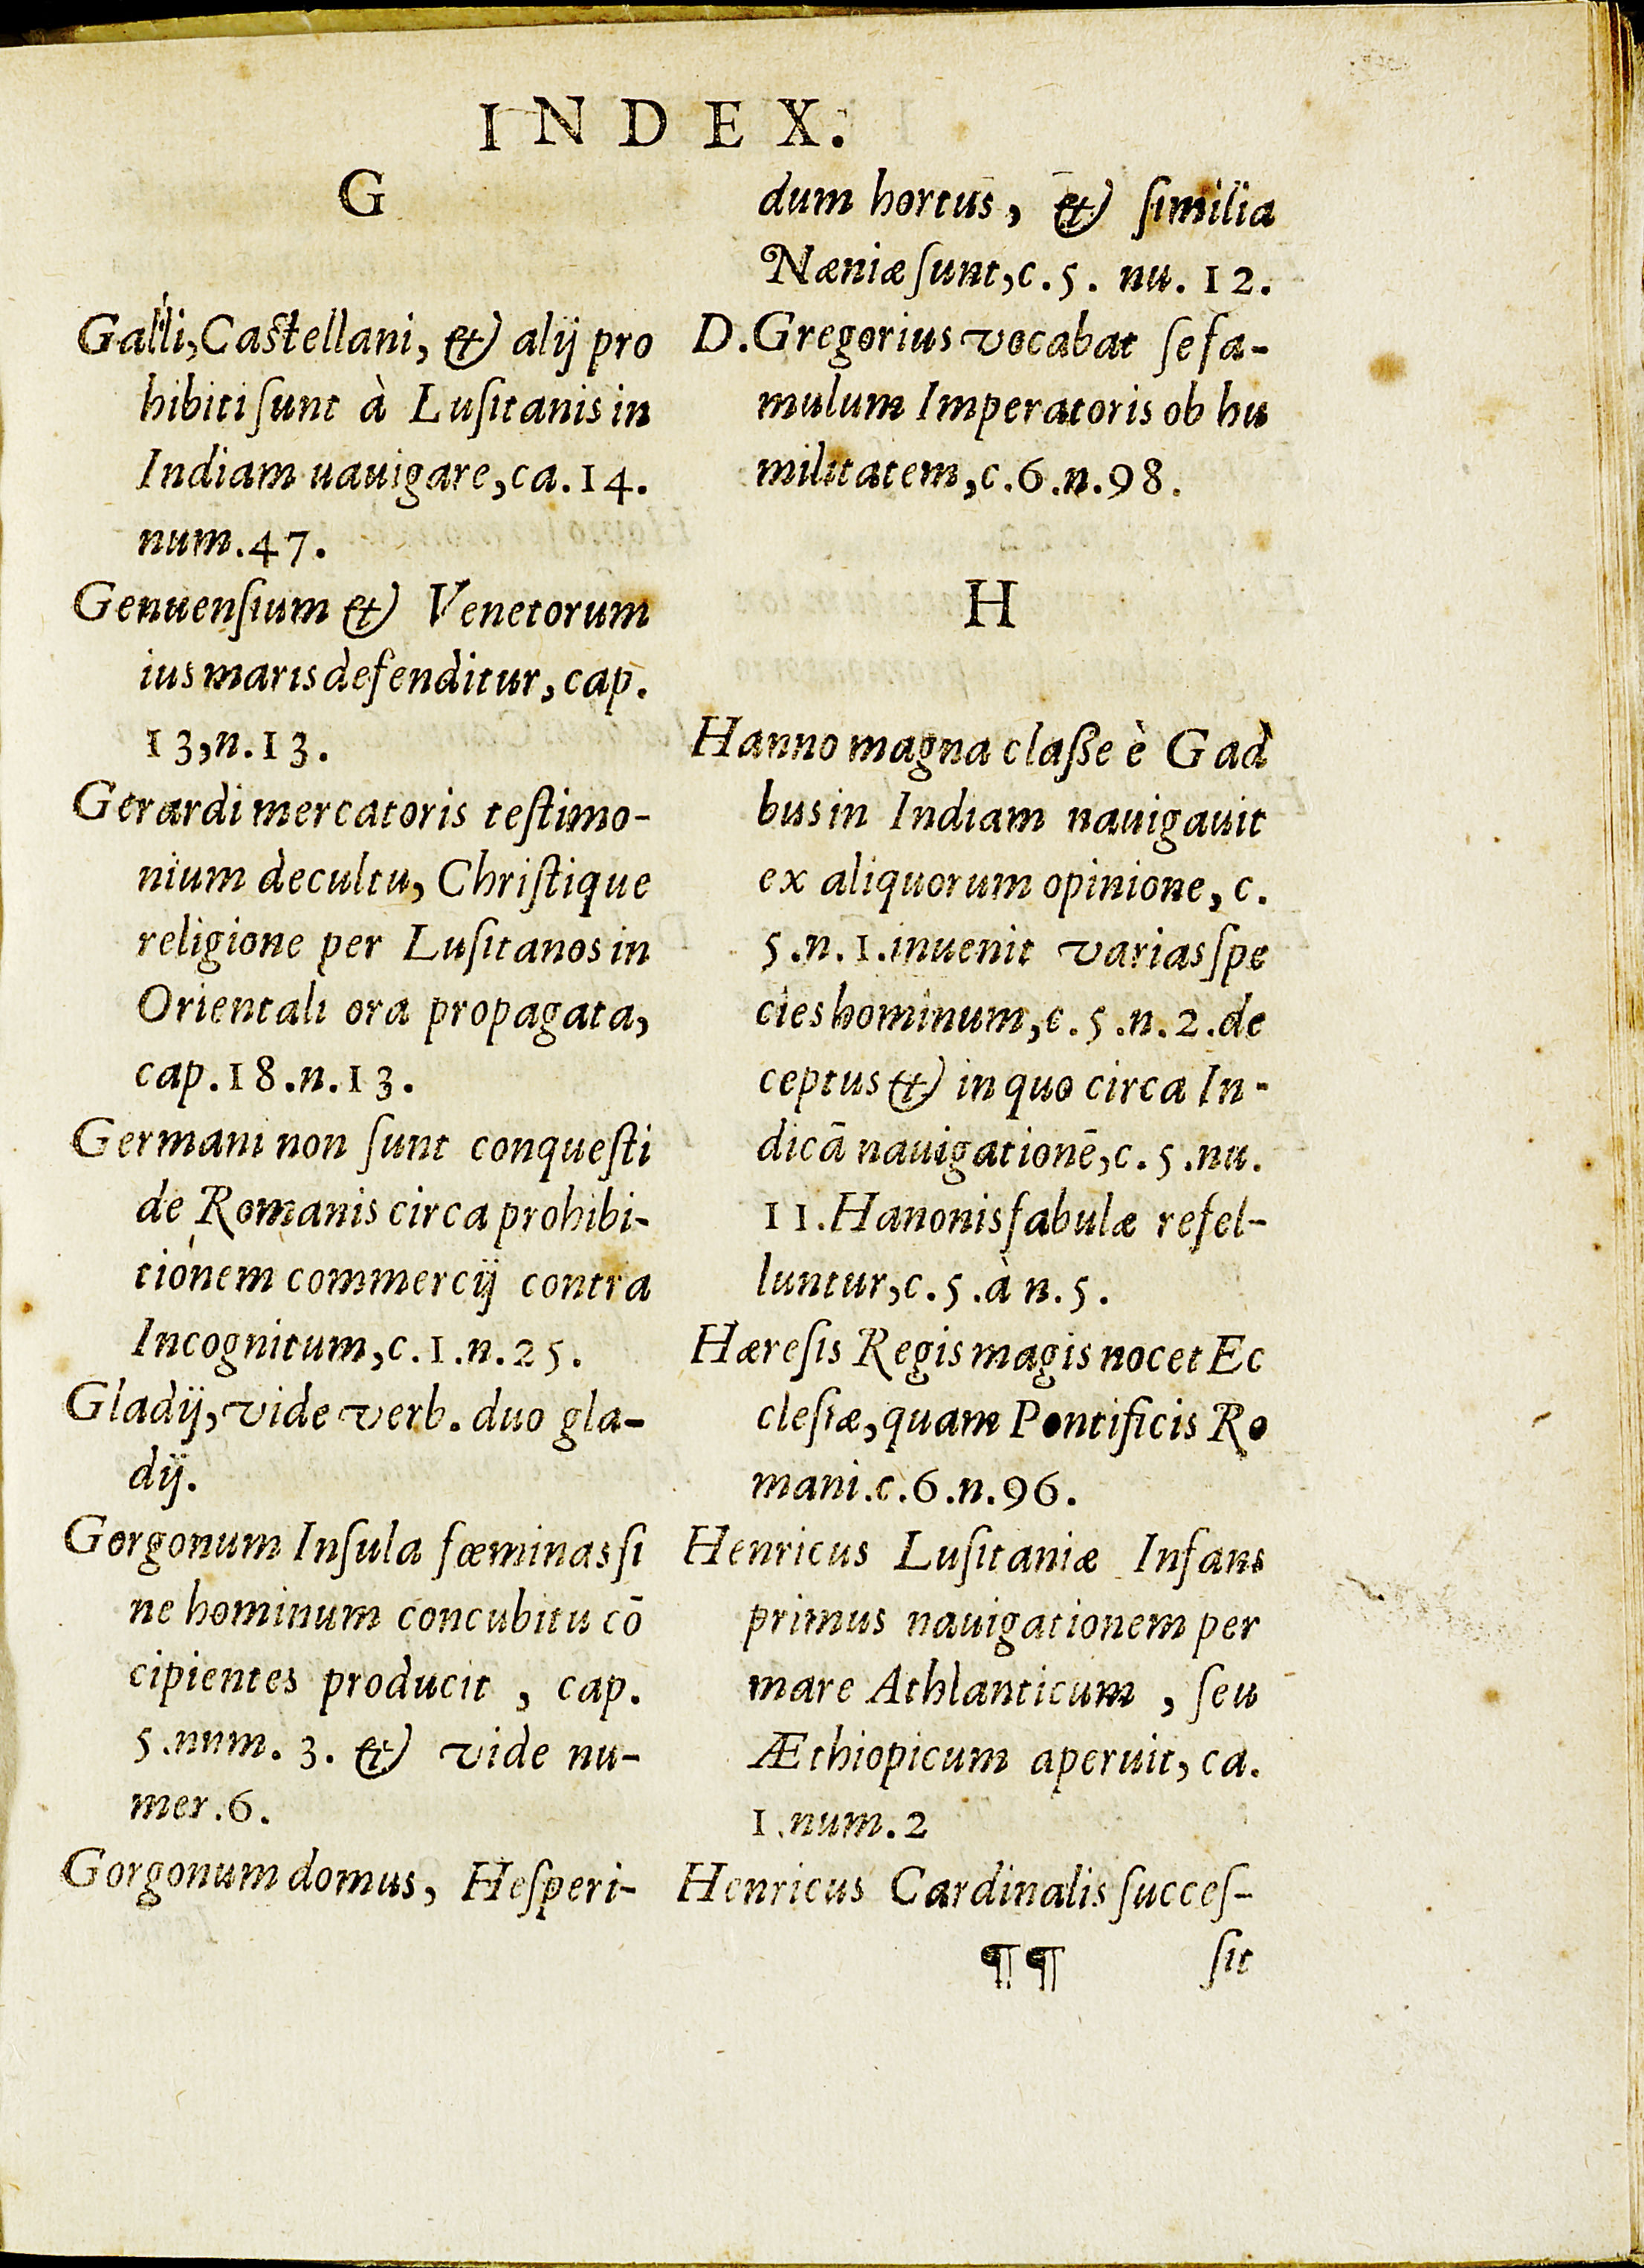 INDEX.
G
Galli, Castellani, & alij pro
hibiti ſunt à Luſitanis in
Indiam uauigare, ca. 14.
num. 47.
Genuenſium & Venetorum
ius maris defenditur, cap.
13, n. 13.
Gerardi mercatoris teſtimo-
nium de cultu, Chriſtique
religione per Luſitanos in
Orientali ora propagata,
cap. 18. n. 13.
Germani non ſunt conqueſti
de Romanis circa prohibi-
tionem commercij contra
Incognitum, c. 1. n. 25.
Gladij, vide verb. duo gla-
dij.
Gorgonum Inſula fœminas ſi
ne hominum concubitu cō
cipientes producit, cap.
5. num. 3. & vide nu-
mer. 6.
Gorgonum domus, Heſperi-
dum hortus, & ſimilia
Næniæ ſunt, c. 5. nu. 12.
D. Gregorius vocabat ſe fa-
mulum Imperatoris ob hu
militatem, c. 6. n. 98.
H
Hanno magna claſſe è Gad
bus in Indiam nauigauit
ex aliquorum opinione, c.
5. n. 1. inuenit varias ſpe
cies hominum, c. 5. n. 2. de
ceptus & in quo circa In-
dicā nauigationē, c. 5. nu.
11. Hanonis fabulæ refel-
luntur, c. 5. à n. 5.
Hæreſis Regis magis nocet Ec
cleſiæ, quam Pontificis Ro
mani. c. 6. n. 96.
Henricus Luſitaniæ Infans
primus nauigationem per
mare Athlanticum, ſeu
Æthiopicum aperuit, ca.
1. num. 2
Henricus Cardinalis ſucceſ-
¶¶ ſit